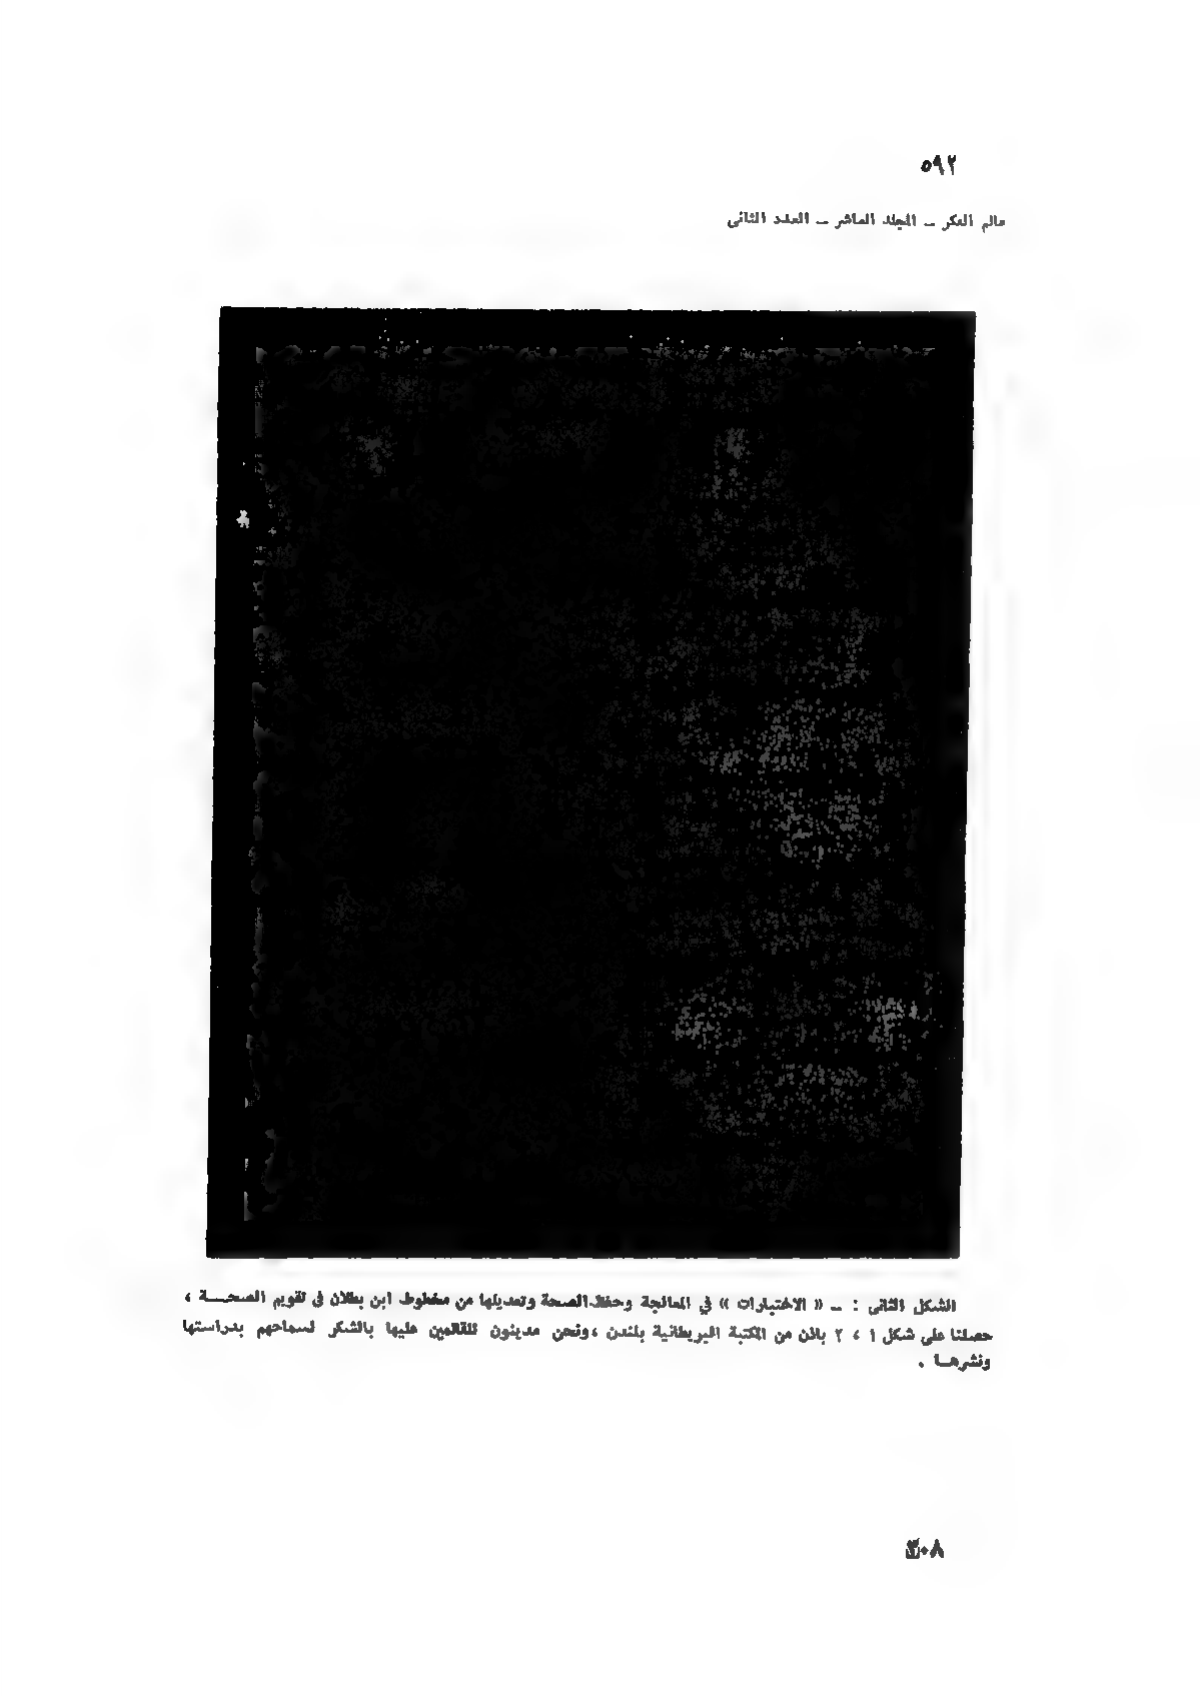 ٥٩٢
عالم الفكر ــ المجلد العاشر ــ العدد الثانى
الشكل الثانى : ــ « الاختيارات » في المعالجة وحفظ الصحة وتعديلها من مخطوط ابن بطلان فى تقويم الصحـــة ،
حصلنا على شكل ١ ، ٢ باذن من المكتبة البريطانية بلندن ،ونحن مدينون للقائمين عليها بالشكر لسماحهم بدراستها
ونشرهــا .